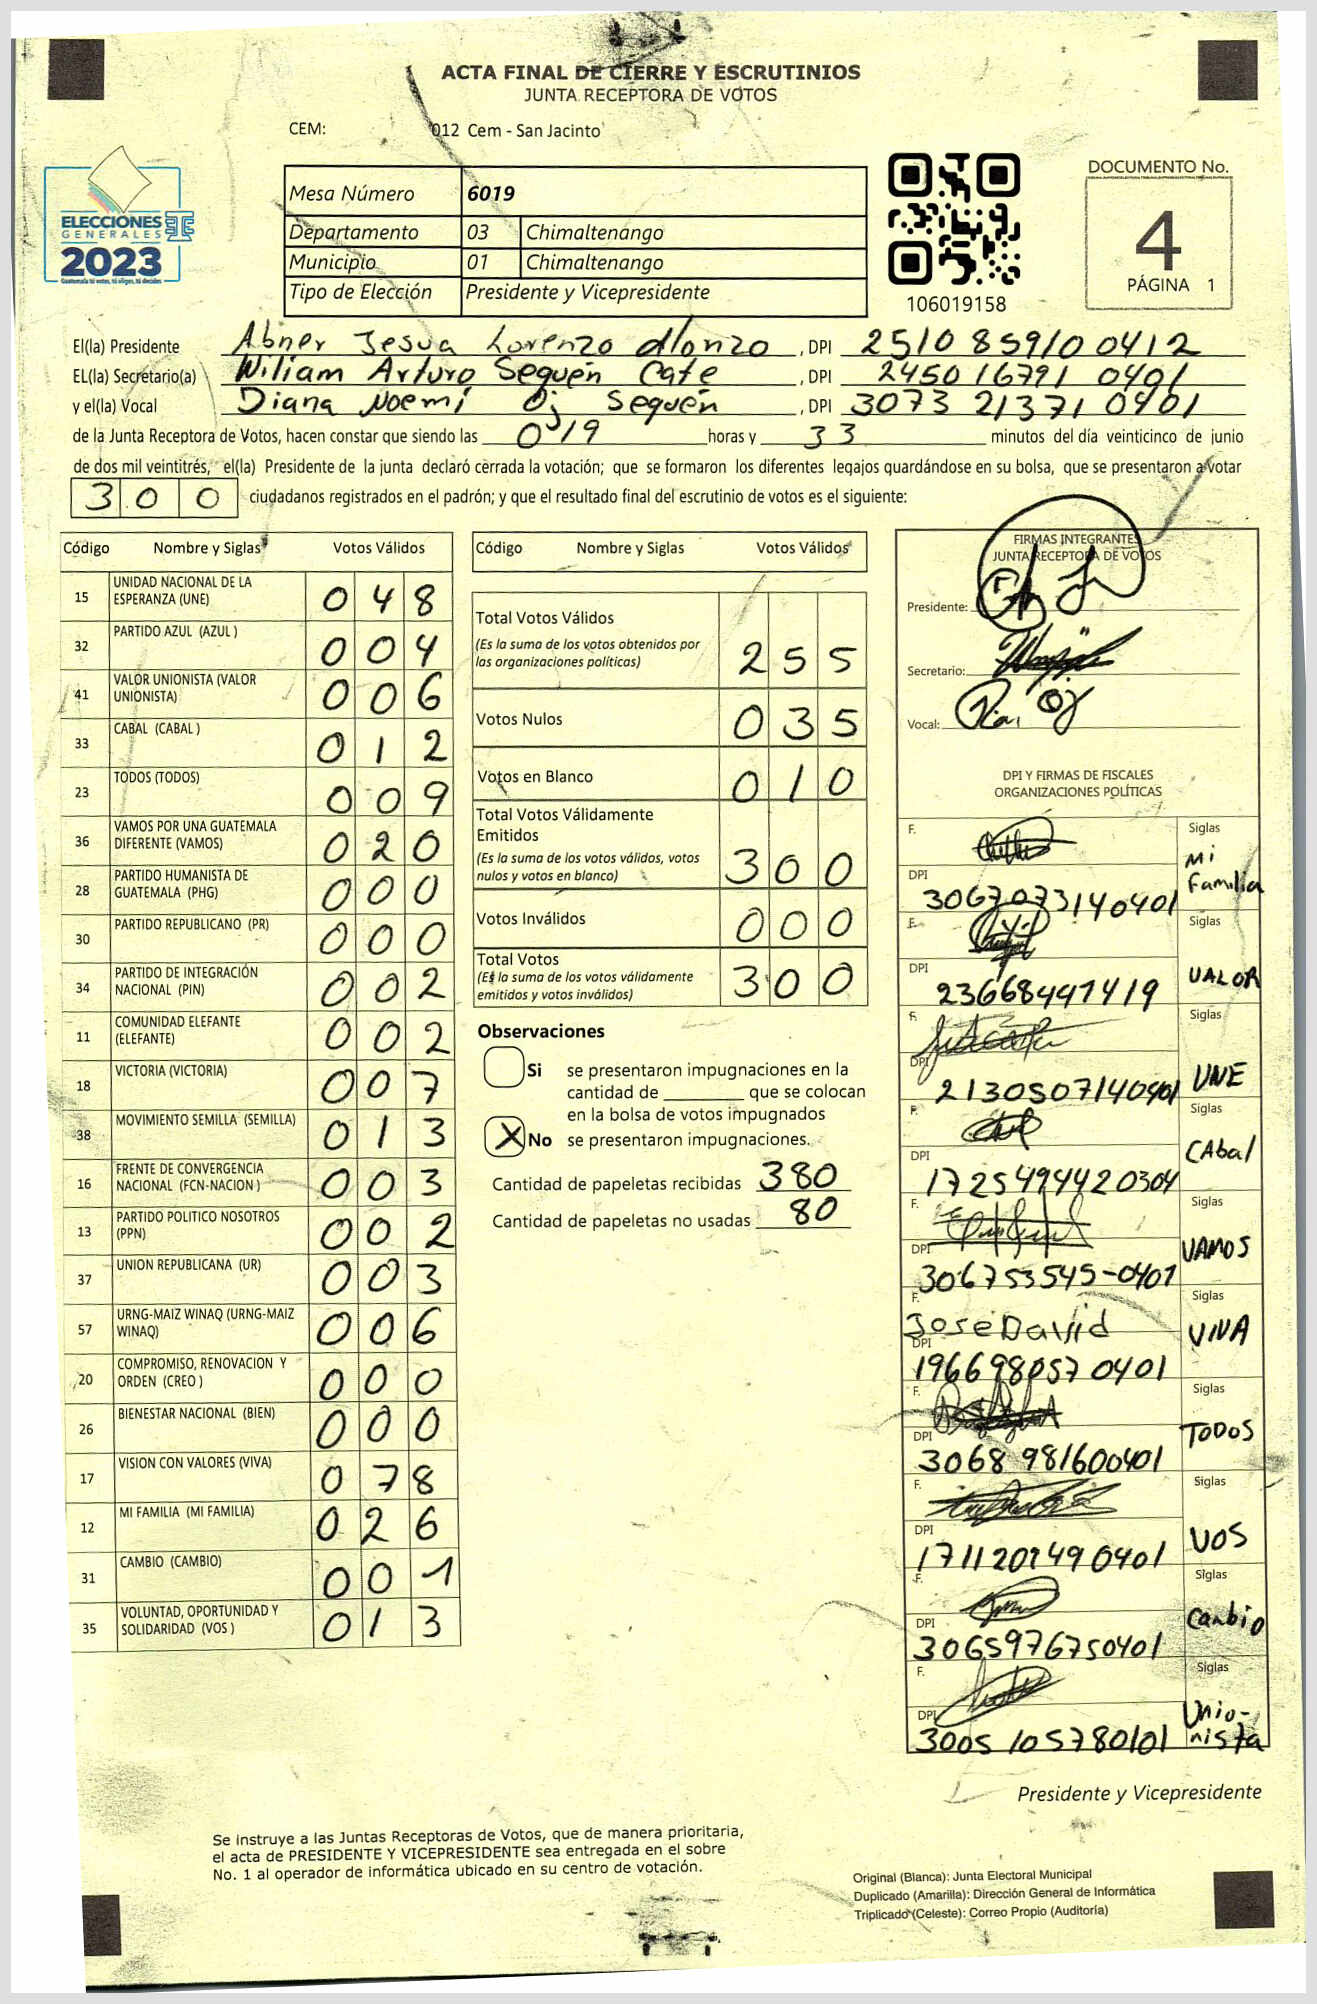 ACTA FINAL DE CIERRE Y ESCRUTINIOS
JUNTA RECEPTORA DE VOTOS
CEM: 012 Cem - San Jacinto
ELECCIONES
GENERALES
2023
Guatemala tú votas, tú eliges, tú decides
Mesa Número 6019
Departamento 03 Chimaltenango
Municipio 01 Chimaltenango
Tipo de Elección Presidente y Vicepresidente
106019158
DOCUMENTO No.
4
PÁGINA 1
El(la) Presidente Abner Jesua Lorenzo Alonzo , DPI 2510 85910 0412
EL(la) Secretario(a) Wiliam Arturo Sequén Cate , DPI 2450 16791 0401
y el(la) Vocal Diana Noemí Oj Sequén , DPI 3073 21371 0401
de la Junta Receptora de Votos, hacen constar que siendo las 019 horas y 33 minutos del día veinticinco de junio
de dos mil veintitrés, el(la) Presidente de la junta declaró cerrada la votación; que se formaron los diferentes legajos guardándose en su bolsa, que se presentaron a votar
300 ciudadanos registrados en el padrón; y que el resultado final del escrutinio de votos es el siguiente:
Código Nombre y Siglas Votos Válidos
15 UNIDAD NACIONAL DE LA ESPERANZA (UNE) 048
32 PARTIDO AZUL (AZUL ) 004
41 VALOR UNIONISTA (VALOR UNIONISTA) 006
33 CABAL (CABAL ) 012
23 TODOS (TODOS) 009
36 VAMOS POR UNA GUATEMALA DIFERENTE (VAMOS) 020
28 PARTIDO HUMANISTA DE GUATEMALA (PHG) 000
30 PARTIDO REPUBLICANO (PR) 000
34 PARTIDO DE INTEGRACIÓN NACIONAL (PIN) 002
11 COMUNIDAD ELEFANTE (ELEFANTE) 002
18 VICTORIA (VICTORIA) 007
38 MOVIMIENTO SEMILLA (SEMILLA) 013
16 FRENTE DE CONVERGENCIA NACIONAL (FCN-NACION ) 003
13 PARTIDO POLITICO NOSOTROS (PPN) 002
37 UNION REPUBLICANA (UR) 003
57 URNG-MAIZ WINAQ (URNG-MAIZ WINAQ) 006
20 COMPROMISO, RENOVACION Y ORDEN (CREO ) 000
26 BIENESTAR NACIONAL (BIEN) 000
17 VISION CON VALORES (VIVA) 078
12 MI FAMILIA (MI FAMILIA) 026
31 CAMBIO (CAMBIO) 001
35 VOLUNTAD, OPORTUNIDAD Y SOLIDARIDAD (VOS ) 013
Código Nombre y Siglas Votos Válidos
Total Votos Válidos
(Es la suma de los votos obtenidos por las organizaciones políticas) 255
Votos Nulos 035
Votos en Blanco 010
Total Votos Válidamente Emitidos
(Es la suma de los votos válidos, votos nulos y votos en blanco) 300
Votos Inválidos 000
Total Votos
(Es la suma de los votos válidamente emitidos y votos inválidos) 300
Observaciones
Si se presentaron impugnaciones en la
cantidad de ________ que se colocan
en la bolsa de votos impugnados
X No se presentaron impugnaciones.
Cantidad de papeletas recibidas 380
Cantidad de papeletas no usadas 80
FIRMAS INTEGRANTES
JUNTA RECEPTORA DE VOTOS
Presidente:
Secretario:
Vocal:
DPI Y FIRMAS DE FISCALES
ORGANIZACIONES POLÍTICAS
F. Siglas Mi Familia
DPI 3067073140401
F. Siglas VALOR
DPI 23668447419
F. Siglas UNE
DPI 2130507140401
F. Siglas CAbal
DPI 1725494420304
F. Siglas VAMOS
DPI 306753545-0401
F. José David Siglas VIVA
DPI 196698057 0401
F. Siglas TODOS
DPI 3068 981600401
F. Siglas VOS
DPI 1711209490401
F. Siglas Cambio
DPI 3065976750401
F. Siglas Unio-nista
DPI 3005 105780101
Presidente y Vicepresidente
Se instruye a las Juntas Receptoras de Votos, que de manera prioritaria,
el acta de PRESIDENTE Y VICEPRESIDENTE sea entregada en el sobre
No. 1 al operador de informática ubicado en su centro de votación.
Original (Blanca): Junta Electoral Municipal
Duplicado (Amarilla): Dirección General de Informática
Triplicado (Celeste): Correo Propio (Auditoría)